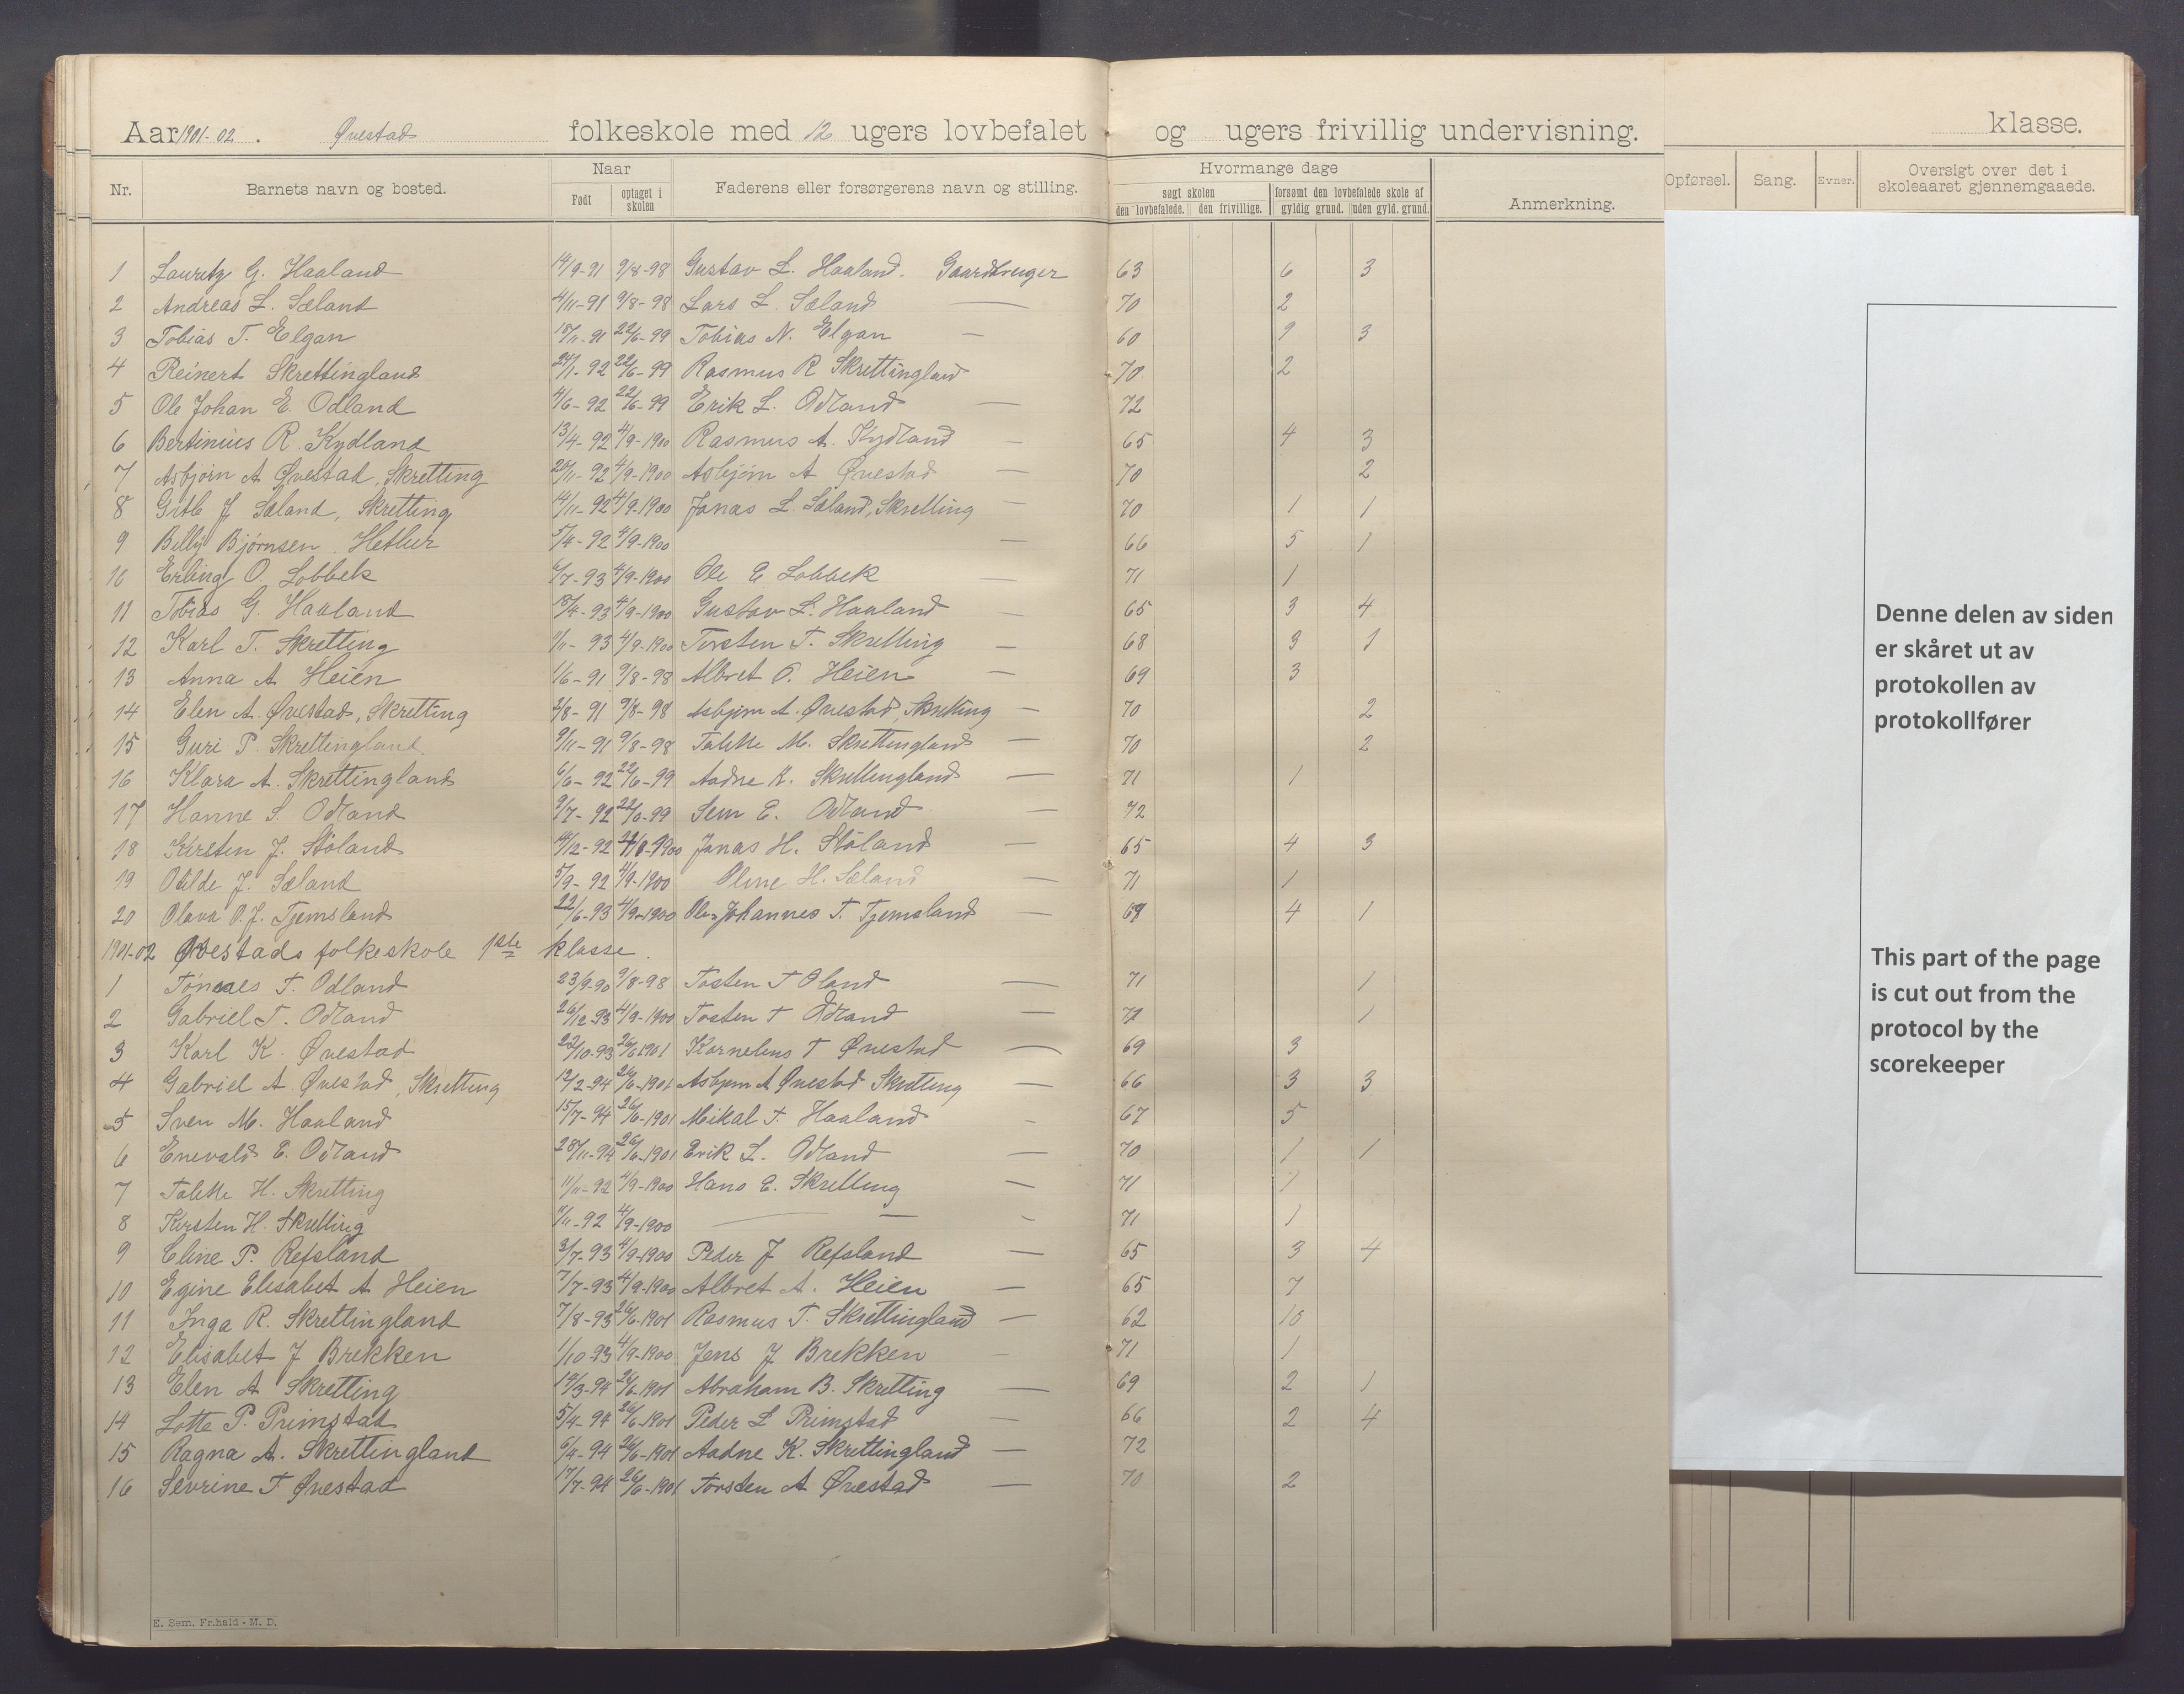 Aar 1901-02. Øvestad folkeskole med 12 ugers lovbefalet og ugers frivillig undervisning. klasse.
Nr. Barnets navn og bosted. Naar Født optaget i skolen Faderens eller forsørgerens navn og stilling. Hvormange dage søgt skolen den lovbefalede. den frivillige. forsømt den lovbefalede skole af gyldig grund. uden gyld. grund. Anmerkning. Opførsel. Sang. Evner. Oversigt over det i skoleaaret gjennemgaaede.
1 Lauritz G. Haaland 14/9-91 9/8-98 Gustav L. Haaland. Gaardbruger 63 6 3
2 Andreas L. Sæland 4/11-91 9/8-98 Lars L. Sæland — 70 2
3 Tobias T. Elgan 18/11-91 22/6-99 Tobias N. Elgan — 60 9 3
4 Reinert Skrettingland 24/1-92 22/6-99 Rasmus R Skrettingland 70 2
5 Ole Johan E. Odland 4/6-92 22/6-99 Erik L. Odland — 72
6 Bertinius R. Kydland 13/4-92 4/9-1900 Rasmus A. Kydland — 65 4 3
7 Asbjørn A Øvestad, Skretting 4/9-1900 Asbjørn A Øvestad — 70 2
8 J Sæland, Skretting 4/11-92 4/9-1900 Jonas L. Sæland, Skretting — 70 1 1
9 Billy Bjørnsen Hetlur 5/4-92 4/9-1900 — 66 5 1
10 Erling O. Lobbek 4/9-1900 Ole E Lobbek 71 1
11 Tobias G. Haaland 4/9-1900 Gustav L. Haaland — 65 3 4
12 Karl T. Skretting 4/9-1900 Torsten T. Skretting — 68 3 1
13 Anna A Heien 1/6-91 9/8-98 Albret O. Heien — 69 3
14 Elen A. Øvestad, Skretting 2/8-91 9/8-98 Asbjørn A. Øvestad, Skretting — 70 2
15 Guri P. Skrettingland 9/11-91 9/8-98 Talette M. Skrettingland — 70 2
16 Klara A. Skrettingland 6/6-92 22/6-99 Aadne K. Skrettingland — 71 1
17 Hanne S. Odland 9/7-92 22/6-99 Sem E. Odland — 72
18 Kirsten J. Støland Jonas H. Støland — 65 4 3
19 Otilde J. Sæland 5/9-92 4/9-1900 Oline H. Sæland — 71 1
20 Olava O. J. Tjemsland 22/6-93 4/9-1900 Ole Johannes T. Tjemsland — 67 4 1
1901-02 Øvestads folkeskole 1ste klasse.
1 Tønnes T. Odland 23/9-90 9/8-98 Tosten T Oland — 71 1
2 Gabriel T. Odland 26/12-93 4/9-1900 Tosten T Odland — 71 1
3 Karl K. Øvestad 22/10-93 26/6 1901 Kornelius T Øvestad — 69 3
4 Gabriel A Øvestad, Skretting 12/2-94 26/6-1901 Asbjørn A Øvestad Skretting — 66 3 3
5 Sven M. Haaland 15/7-94 26/6-1901 Mikal T. Haaland - 67 5
6 Enevald E. Odland 28/11-94 26/6-1901 Erik L. Odland — 70 1 1
7 Talette H. Skretting 11/11-92 4/9-1900 Hans E. Skretting — 71 1
8 Kirsten H. Skretting 11/11-92 4/9-1900 — — - 71 1
9 Eline P. Refsland 3/7-93 4/9-1900 Peder J Refsland — 65 3 4
10 Egine Elisabet A Heien 7/7-93 4/9-1900 Albret A. Heien — 65 7
11 Inga R. Skrettingland 7/8-93 26/6-1901 Rasmus T. Skrettingland — 62 10
12 Elisabet J Brekken 1/10-93 4/9-1900 Jens J Brekken — 71 1
13 Elen A Skretting 26/6-1901 Abraham B. Skretting — 69 2 1
14 Lotte P. Primstad 5/4-94 26/6-1901 Peder L Primstad — 66 2 4
15 Ragna A. Skrettingland 6/4-94 26/6-1901 Aadne K. Skrettingland — 72
16 Sevrine T Øvestad 17/7-94 26/6-1901 Torsten A Øvestad — 70 2
E. Sem. Fr.hald - M. D.
Denne delen av siden
er skåret ut av
protokollen av
protokollfører
This part of the page
is cut out from the
protocol by the
scorekeeper